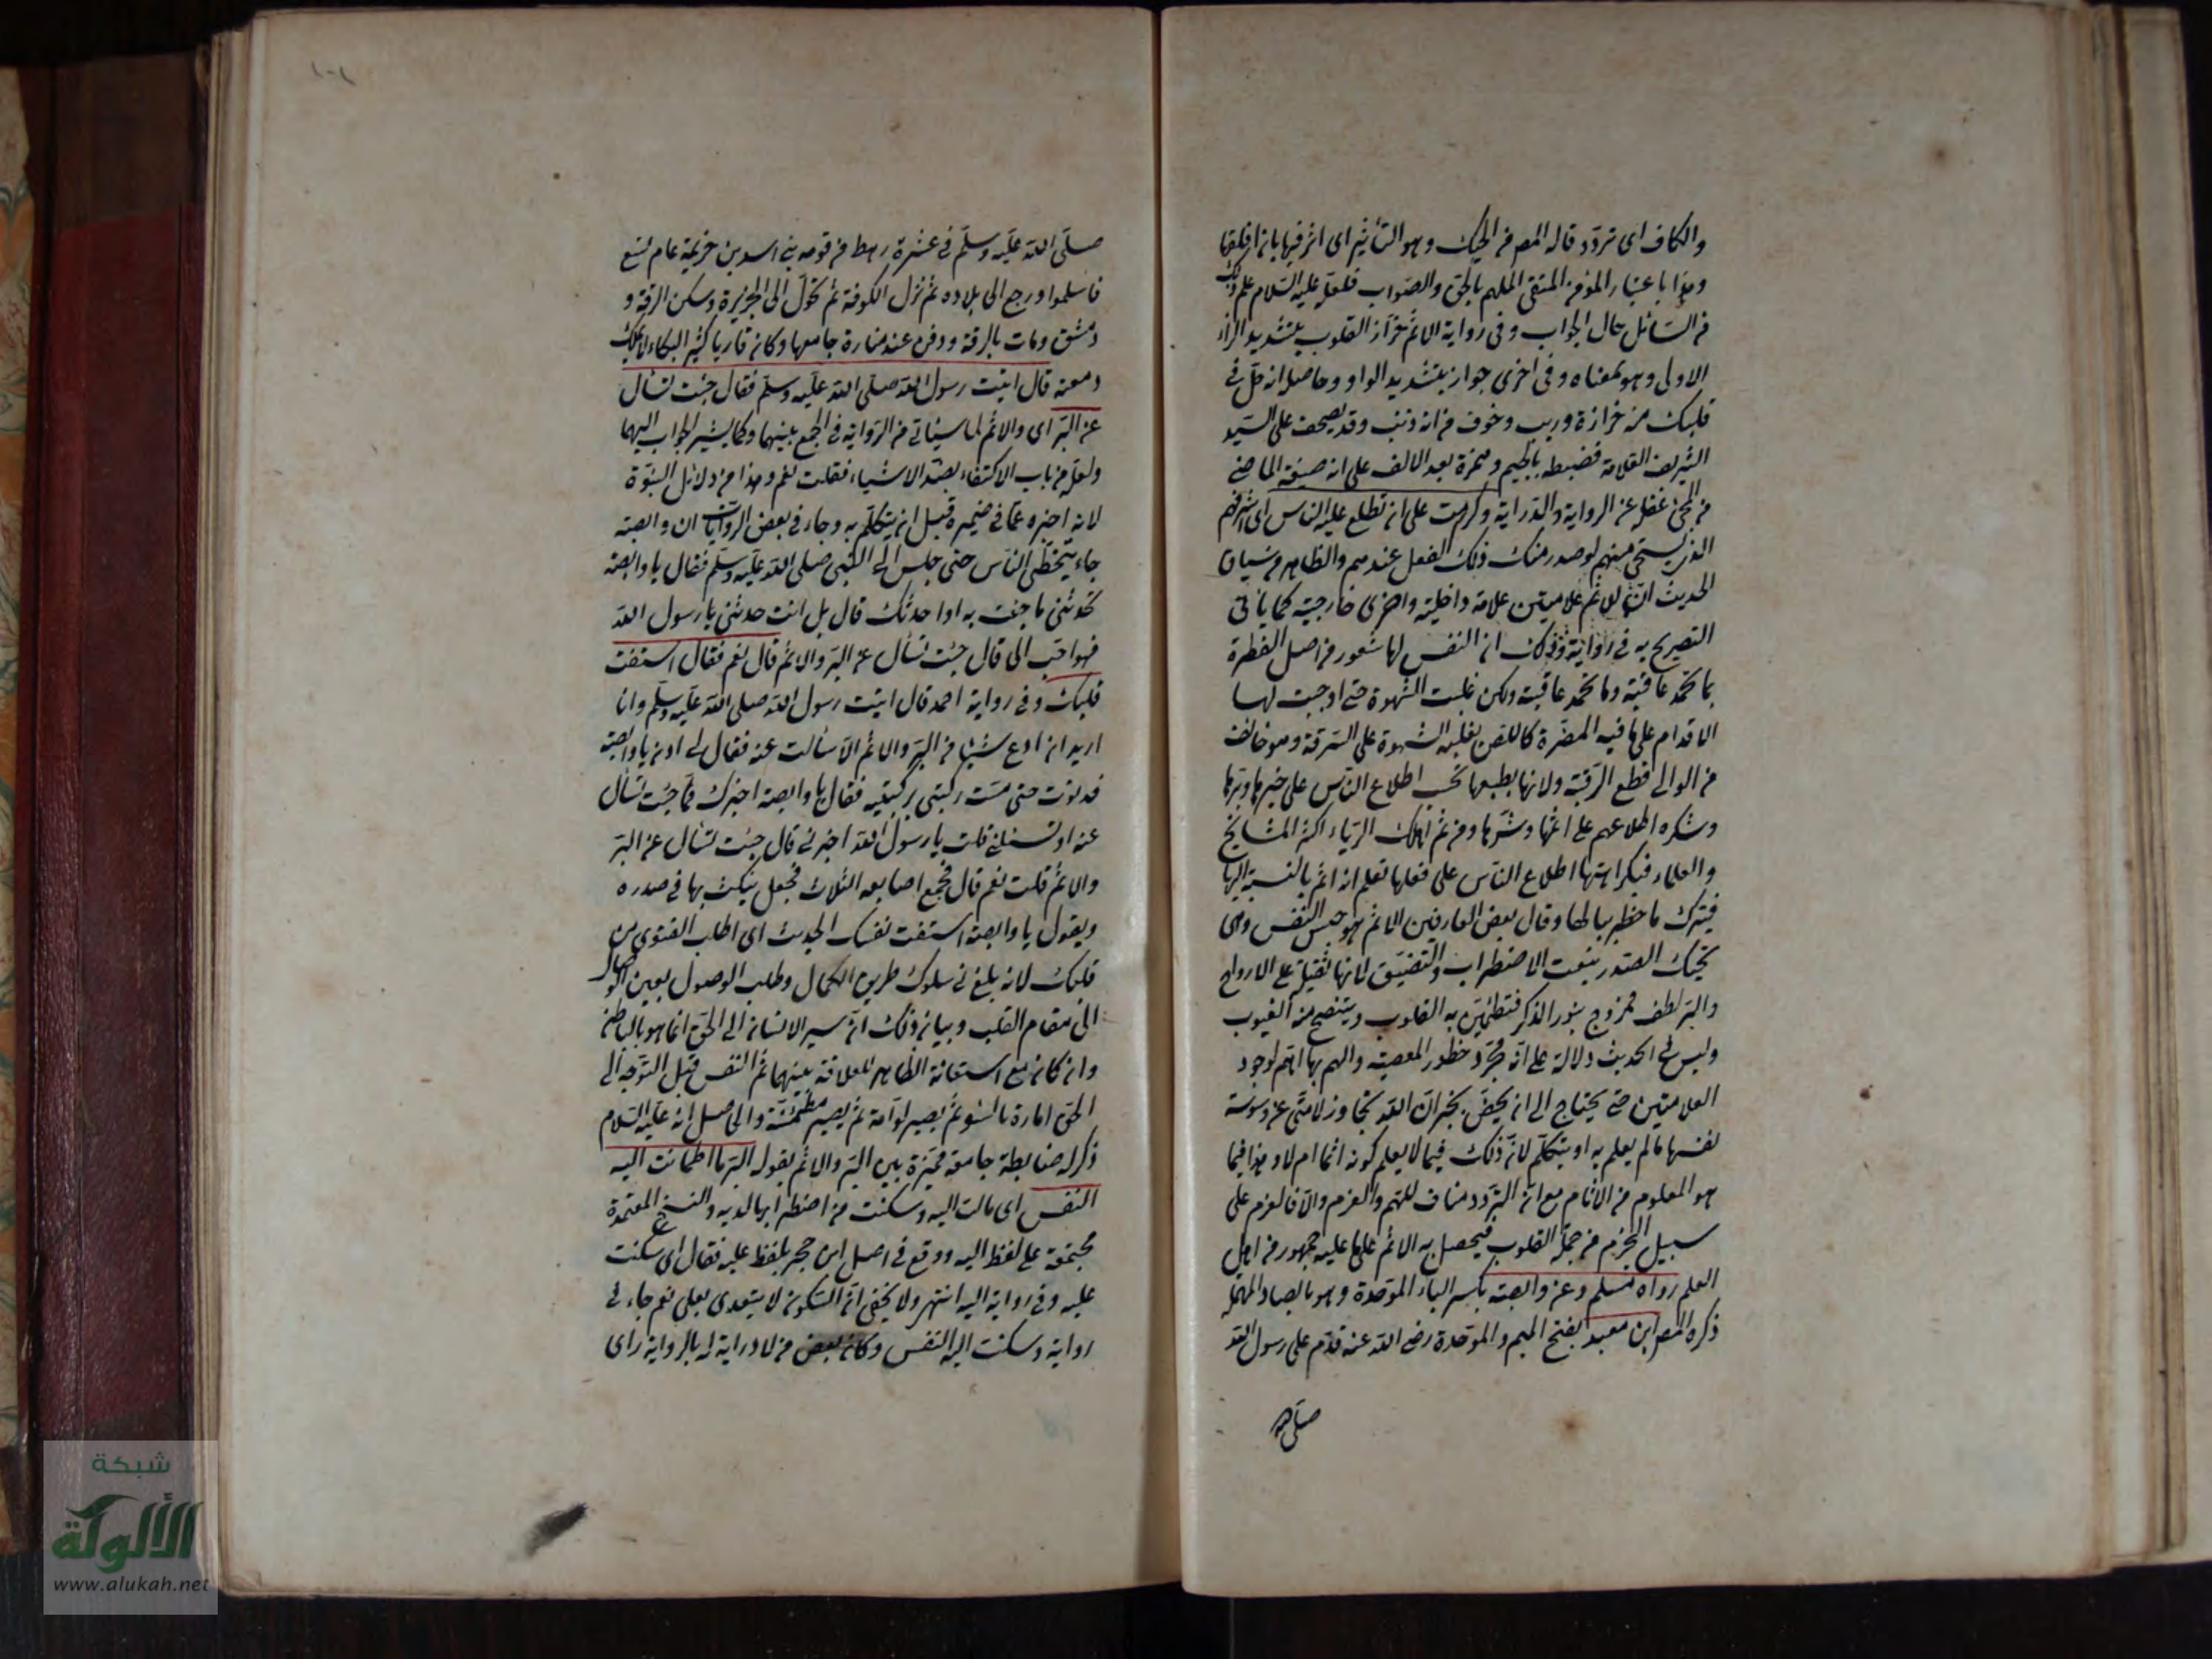 والكاف اى تردد قاله المص من الحيك وهو التأثير اى اثر فيها بانها قلقها
وهذا باعتبار المؤمن المتقى الملهم بالحق والصواب فلعله عليه السلام علم ذلك
من السائل حال الجواب وفى رواية الاثم حزاز القلوب بتشديد الزاء
الاولى وهو بمعناه وفى اخرى حواز بتشديد الواو وحاصله انه حل فى
قلبك منه حزازة وريب وخوف من انه ذنب وقد تصحف على السيد
الشريف العلامة فضبطه بالجيم وهمزة بعد الالف على انه صيغة الماضى
من المجئ غفلة عن الرواية والدراية وكرهت على ان تطلع عليه الناس اى اشرافهم
الذى يستحى منهم لو صدر منك ذلك الفعل عندهم والظاهر من سياق
الحديث ان للاثم علامتين علامة داخلية واخرى خارجية كما يأتى
التصريح به فى رواية وذلك ان النفس لها شعور من اصل الفطرة
بما تحمد عاقبته وما تحمد عاقبته ولكن غلبت الشهوة حتى اوجبت لها
الاقدام على ما فيه المضرة كاللص يغلبه الشهوة على السرقة وهو خائف
من الوالى قطع الرقبة ولانها بطبعها تحب اطلاع الناس على خيرها وبرها
وتكره اطلاعهم على اثمها وشرها ومن ثم اهلك الرياء اكثر المشايخ
والعلماء فبكراهتها اطلاع الناس على فعلها تعلم انه اثم بالنسبة اليها
فيترك ما خطر ببالها وقال بعض العارفين الاثم هو حبس النفس وهى
تحيك الصدر بنعت الاضطراب والتضيق لانها ثقيلة على الارواح
والبر لطف ممزوج بنور الذكر فتطمئن به القلوب ويتضح منه الغيوب
وليس فى الحديث دلالة على انه مجرد خطور المعصية والهم بها اثم لوجود
العلامتين حتى يحتاج الى ان يخص بخبر ان الله تجاوز لامتى عن وسوسة
نفسها ما لم يعلم به او يتكلم لان ذلك فيما لا يعلم كونه اثما ام لا وهذا فيما
هو المعلوم من الآثام مع ان التردد مناف للهم والعزم والا فالعزم على
سبيل الجزم من جملة القلوب فيحصل به الاثم على ما عليه جمهور من اهل
العلم رواه مسلم وعن وابصة بكسر الباء الموحدة وهو بالصاد المهملة
ذكره المص ابن معبد بفتح الميم والموحدة رضى الله عنه قدم على رسول الله
صلى الله
صلى الله عليه وسلم فى عشرة رهط من قومه بنى اسد بن خزيمة عام تسع
فاسلموا ورجع الى بلاده ثم نزل الكوفة ثم تحول الى الجزيرة وسكن الرقة و
دمشق ومات بالرقة ودفن عند منارة جامعها وكان قارئا كثير البكاء لا يملك
دمعته قال اتيت رسول الله صلى الله عليه وسلم فقال جئت تسأل
عن البر اى والاثم لما سيأتى من الرواية فى الجمع بينهما وكما يشير الجواب اليهما
ولعله من باب الاكتفاء بضد الاشياء فقلت نعم وهذا من دلائل النبوة
لانه اخبره عما فى ضميره قبل ان يتكلم به وجاء فى بعض الروايات ان وابصة
جاء يتخطى الناس حتى جلس الى النبى صلى الله عليه وسلم فقال يا وابصة
تحدثنى ما جئت به او احدثك قال بل انت حدثنى يا رسول الله
فهو احب الى قال جئت تسأل عن البر والاثم قال نعم فقال استفت
قلبك وفى رواية احمد قال اتيت رسول الله صلى الله عليه وسلم وانا
اريد ان ادع شيئا من البر والاثم الا سألت عنه فقال لى ادن يا وابصة
فدنوت حتى مست ركبتى بركبتيه فقال يا وابصة اخبرك عما جئت تسأل
عنه او تسئلنى قلت يا رسول الله اخبرنى قال جئت تسأل عن البر
والاثم قلت نعم قال فجمع اصابعه الثلاث فجعل ينكث بها فى صدره
ويقول يا وابصة استفت نفسك الحديث اى اطلب الفتوى من
قلبك لانه بلغ فى سلوك طريق الكمال وطلب الوصول بعين الوصال
الى مقام القلب وبيان ذلك ان سير الانسان الى الحق انما هو بالباطن
وان كان مع استعانة الظاهر للعلاقة بينهما ثم النفس قبل التوجه الى
الحق امارة بالسوء ثم يصير لوامة ثم يصير مطمئنة والحاصل انه عليه السلام
ذكر له ضابطة جامعة مميزة بين البر والاثم بقوله البر ما اطمأنت اليه
النفس اى مالت اليه وسكنت من اضطرابها لديه والنسخ المعتمدة
مجتمعة على لفظ اليه ووقع فى اصل ابن حجر بلفظ عليه فقال اى سكنت
عليه وفى رواية اليه انتهى ولا يخفى ان السكون لا يتعدى بعلى نعم جاء فى
رواية وسكنت اليه النفس وكان بعض من لا دراية له بالرواية راى
شبكة
الألوكة
www.alukah.net